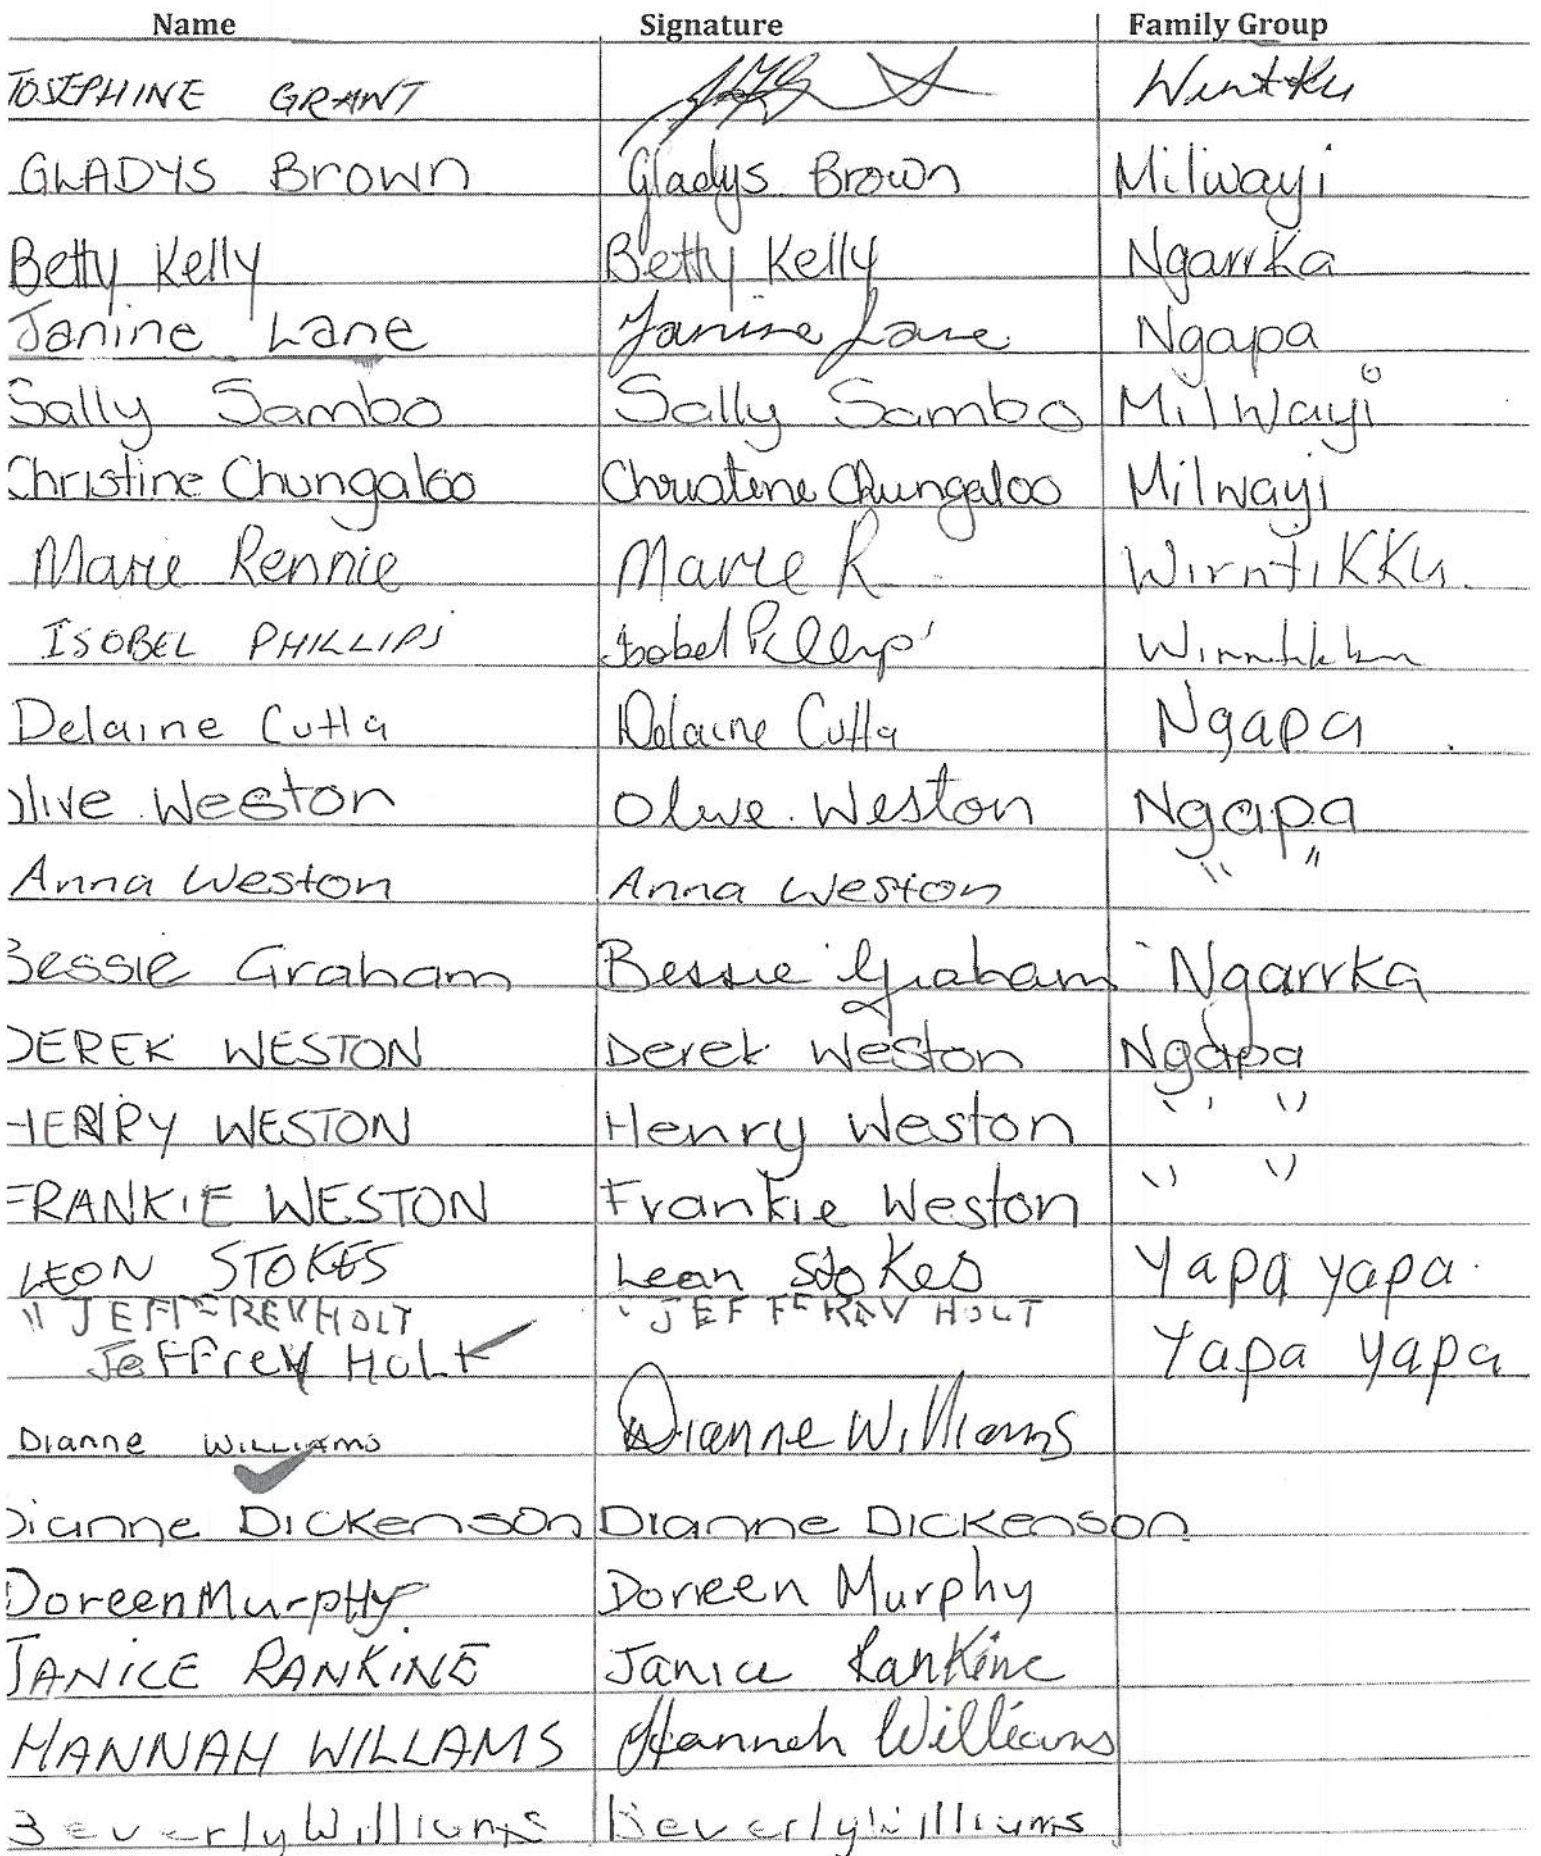 Name Signature Family Group
JOSEPHINE GRANT
GLADYS Brown Gladys Brown Milwayi
Betty Kelly Betty Kelly Ngarrka
Janine Lane Janine Lane Ngapa
Sally Sambo Sally Sambo Milwayi
Christine Chungaloo Christine Chungaloo Milwayi
Marie Rennie Marie R Wirntikku.
ISOBEL PHILLIPS Isobel Phillips
Delaine Cutta Delaine Cutta Ngapa
Olive. Weston Olive. Weston Ngapa
Anna Weston Anna Weston " "
Bessie Graham Bessie Graham Ngarrka
DEREK WESTON Derek Weston Ngapa
HENRY WESTON Henry Weston " "
FRANKIE WESTON Frankie Weston " "
LEON STOKES Leon Stokes Yapa yapa.
" JEFFREY HOLT " JEFFREY HOLT
Jeffrey Holt Yapa yapa
Dianne Williams Dianne Williams
Dianne Dickenson Dianne Dickenson
Doreen Murphy Doreen Murphy
JANICE RANKINE Janice Rankine
HANNAH WILLAMS Hannah Williams
Beverly Williams Beverly Williams